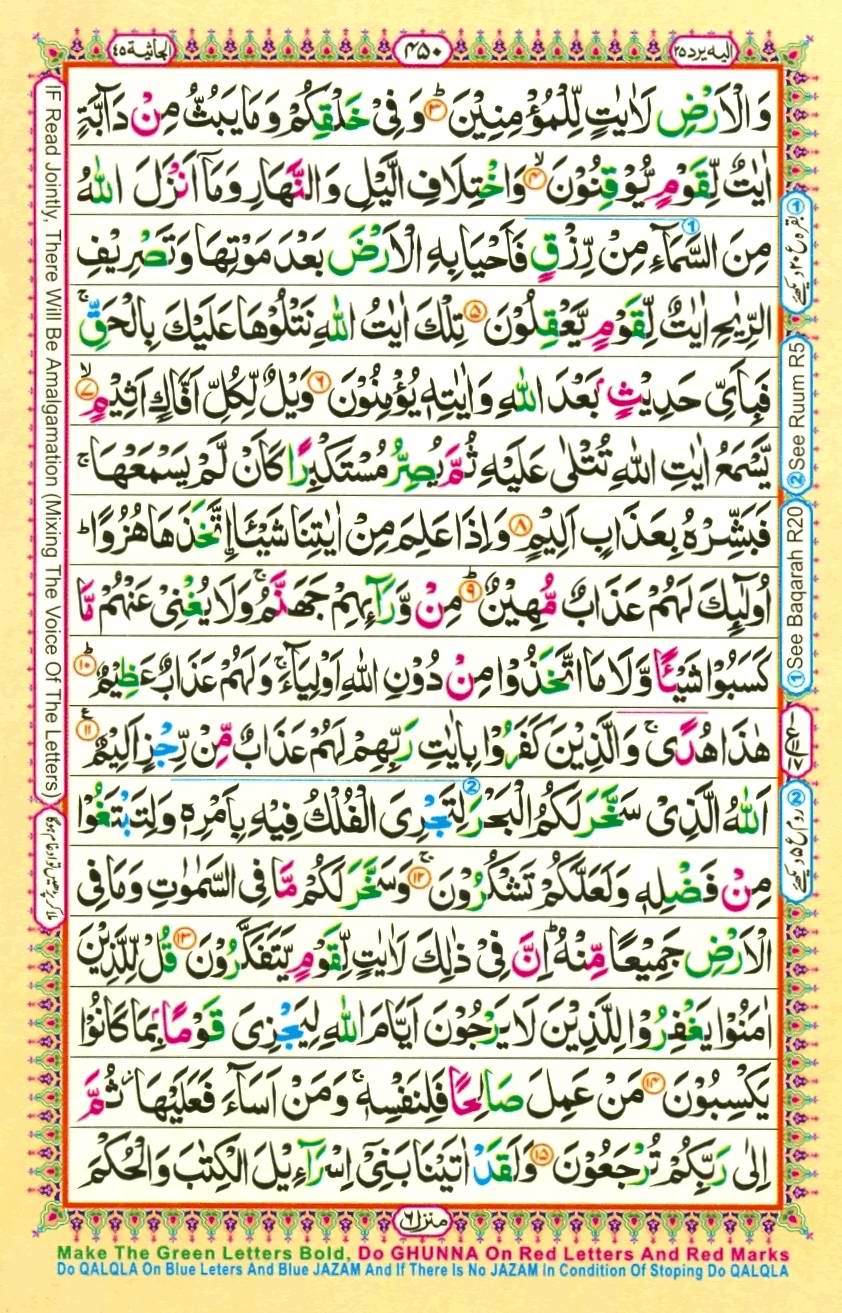 الجاثية ٤٥
٤٥٠
اليه يرد ٢٥
وَالْاَرْضِ لَاٰيٰتٍ لِّلْمُؤْمِنِيْنَ ؕ﴿۳﴾ وَ فِيْ خَلْقِكُمْ وَ مَا يَبُثُّ مِنْ دَآبَّةٍ
اٰيٰتٌ لِّقَوْمٍ يُّوْقِنُوْنَ ۙ﴿۴﴾ وَاخْتِلَافِ الَّيْلِ وَالنَّهَارِ وَمَاۤ اَنْزَلَ اللّٰهُ
مِنَ السَّمَآءِ مِنْ رِّزْقٍ فَاَحْيَا بِهِ الْاَرْضَ بَعْدَ مَوْتِهَا وَ تَصْرِيْفِ
الرِّيٰحِ اٰيٰتٌ لِّقَوْمٍ يَّعْقِلُوْنَ ﴿۵﴾ تِلْكَ اٰيٰتُ اللّٰهِ نَتْلُوْهَا عَلَيْكَ بِالْحَقِّ ۚ
فَبِاَيِّ حَدِيْثٍۭ بَعْدَ اللّٰهِ وَ اٰيٰتِهٖ يُؤْمِنُوْنَ ﴿۶﴾ وَيْلٌ لِّكُلِّ اَفَّاكٍ اَثِيْمٍ ۙ﴿۷﴾
يَّسْمَعُ اٰيٰتِ اللّٰهِ تُتْلٰى عَلَيْهِ ثُمَّ يُصِرُّ مُسْتَكْبِرًا كَاَنْ لَّمْ يَسْمَعْهَا ۚ
فَبَشِّرْهُ بِعَذَابٍ اَلِيْمٍ ﴿۸﴾ وَاِذَا عَلِمَ مِنْ اٰيٰتِنَا شَيْـًٔا اۨتَّخَذَهَا هُزُوًا ؕ
اُولٰٓئِكَ لَهُمْ عَذَابٌ مُّهِيْنٌ ؕ﴿۹﴾ مِنْ وَّرَآئِهِمْ جَهَنَّمُ ۚ وَلَا يُغْنِيْ عَنْهُمْ مَّا
كَسَبُوْا شَيْـًٔا وَّلَا مَا اتَّخَذُوْا مِنْ دُوْنِ اللّٰهِ اَوْلِيَآءَ ۚ وَلَهُمْ عَذَابٌ عَظِيْمٌ ؕ﴿۱۰﴾
هٰذَا هُدًى ۚ وَالَّذِيْنَ كَفَرُوْا بِاٰيٰتِ رَبِّهِمْ لَهُمْ عَذَابٌ مِّنْ رِّجْزٍ اَلِيْمٌ ﴿۱۱﴾ ع
اَللّٰهُ الَّذِيْ سَخَّرَ لَكُمُ الْبَحْرَ لِتَجْرِيَ الْفُلْكُ فِيْهِ بِاَمْرِهٖ وَلِتَبْتَغُوْا
مِنْ فَضْلِهٖ وَلَعَلَّكُمْ تَشْكُرُوْنَ ۚ﴿۱۲﴾ وَسَخَّرَ لَكُمْ مَّا فِي السَّمٰوٰتِ وَمَا فِي
الْاَرْضِ جَمِيْعًا مِّنْهُ ؕ اِنَّ فِيْ ذٰلِكَ لَاٰيٰتٍ لِّقَوْمٍ يَّتَفَكَّرُوْنَ ﴿۱۳﴾ قُلْ لِّلَّذِيْنَ
اٰمَنُوْا يَغْفِرُوْا لِلَّذِيْنَ لَا يَرْجُوْنَ اَيَّامَ اللّٰهِ لِيَجْزِيَ قَوْمًۢا بِمَا كَانُوْا
يَكْسِبُوْنَ ﴿۱۴﴾ مَنْ عَمِلَ صَالِحًا فَلِنَفْسِهٖ ۚ وَمَنْ اَسَآءَ فَعَلَيْهَا ؗ ثُمَّ
اِلٰى رَبِّكُمْ تُرْجَعُوْنَ ﴿۱۵﴾ وَلَقَدْ اٰتَيْنَا بَنِيْۤ اِسْرَآءِيْلَ الْكِتٰبَ وَالْحُكْمَ
منزل ٦
① بقره ع ۲۰ دیکھئے
② See Ruum R5
① See Baqarah R20
② روم ع ۵ دیکھئے
IF Read Jointly, There Will Be Amalgamation (Mixing The Voice Of The Letters)
ملا کر پڑھیں تو ادغام ہوگا
Make The Green Letters Bold, Do GHUNNA On Red Letters And Red Marks
Do QALQLA On Blue Leters And Blue JAZAM And If There Is No JAZAM In Condition Of Stoping Do QALQLA